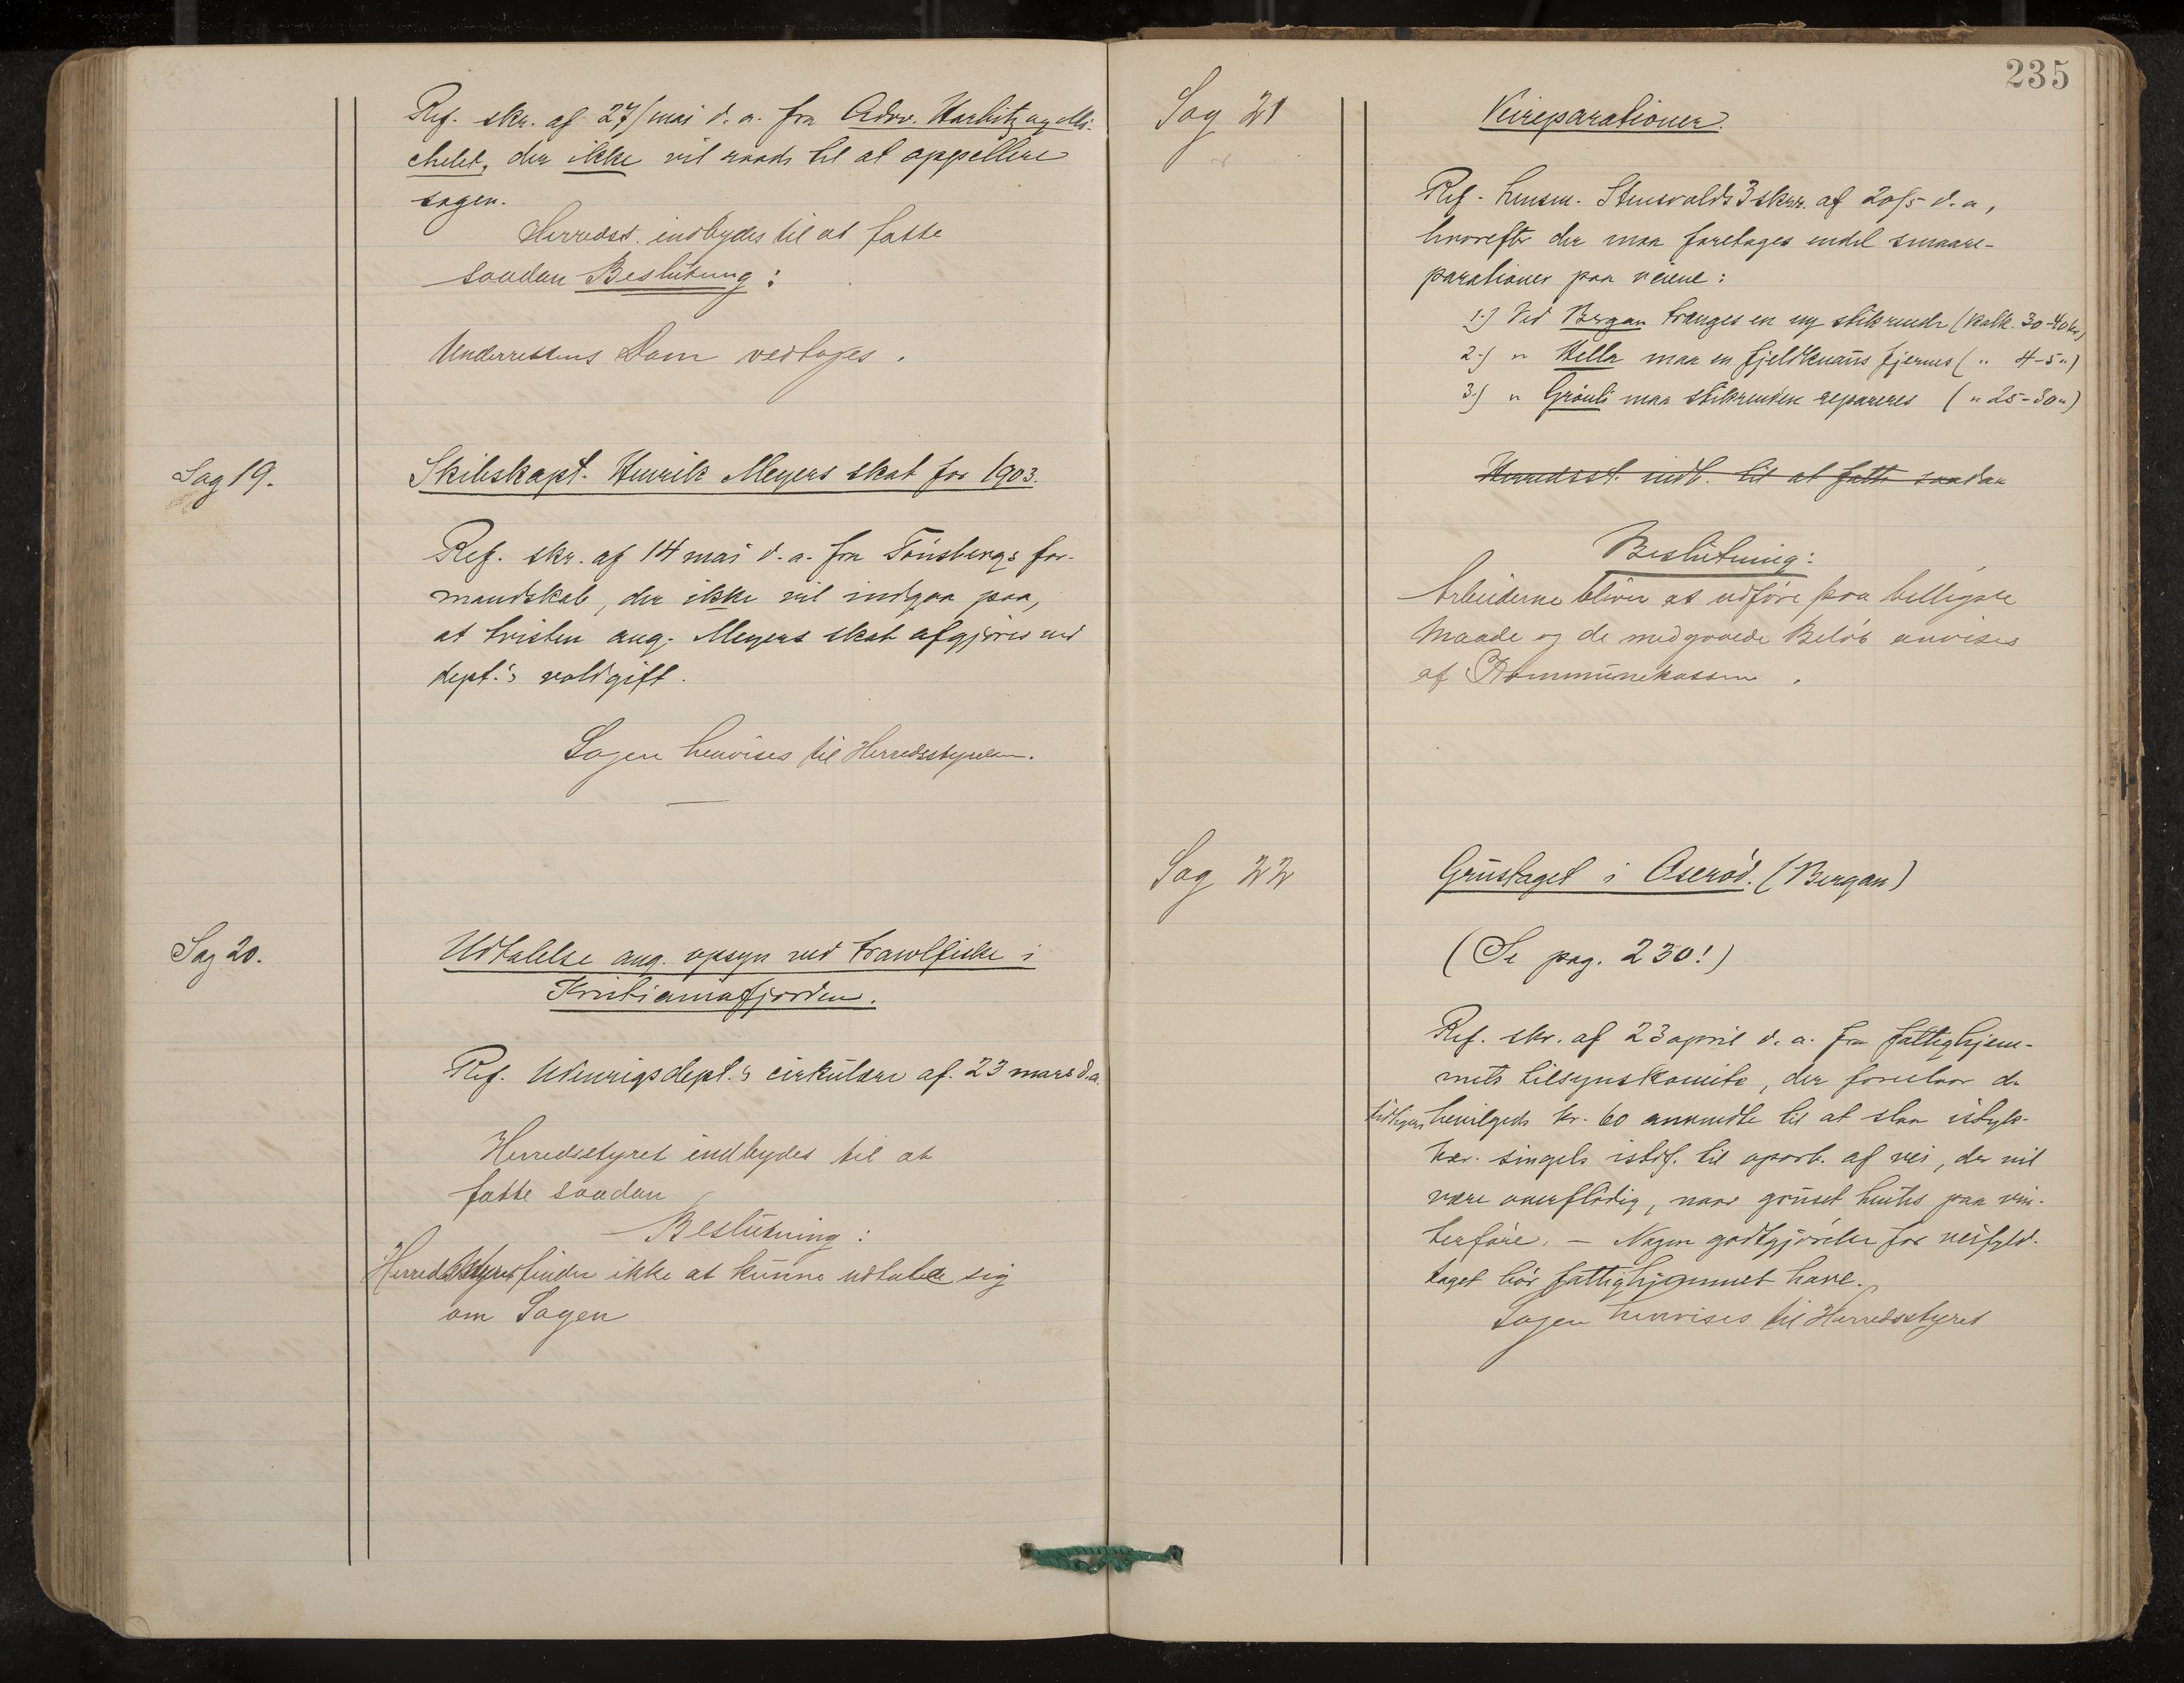 Ref. skr. af 27/mai d. a. fra Adv. Harbitz og Mi-
chelet, der ikke vil raade til at appellere
sagen.
Herredsst. indbydes til at fatte
saadan Beslutning:
Underrettens Dom vedtages.
Sag 19.
Skibskapt. Henrik Meyers skat for 1903.
Ref. skr. af 14 mai d. a. fra Tönsbergs for-
mandskab, der ikke vil indgaa paa,
at tvisten ang. Meyers skat afgjöres ved
dept.'s voldgift.
Sagen henvises til Herredsstyrelsen.
Sag 20.
Udtalelse ang. opsyn ved trawlfiske i
Kristianiafjorden.
Ref. Udenrigsdept.'s cirkulære af 23 mars d.a.
Herredsstyret indbydes til at
fatte saadan
Beslutning:
Herredsstyret finder ikke at kunne udtale sig
om Sagen
235
Sag 21
Veireparationer.
Ref. lensm. Stensvolds 3 skrr. af 20/5 d. a,
hvorefter der maa foretages endel smaare-
parationer paa veiene:
1.) Ved Bergan trænges en ny stikrende (kalk. 30-40 kr)
2.) " Hella maa en fjeldknaus fjernes ( " 4-5 ")
3.) " Grönli maa stikrenden repareres ( " 25-30 ")
Herredsst. indb. til at fatte saadan
Beslutning:
Arbeiderne bliver at udföre paa billigste
Maade og de medgaaede Belöb anvises
af Kommunekassen.
Sag 22
Grustaget i Aseröd. (Bergan)
(Se pag. 230!)
Ref. skr. af 23 april d. a. fra fattighjem-
mets tilsynskomite, der foreslaar de
tidligere bevilgede kr. 60 anvendte til at slaa istyk-
ker singels istdf. til oparb. af vei, der vil
være overflödig, naar gruset hentes paa vin-
terföre. — Nogen godtgjörelse for veifyld-
taget bör fattighjemmet have.
Sagen henvises til Herredsstyret